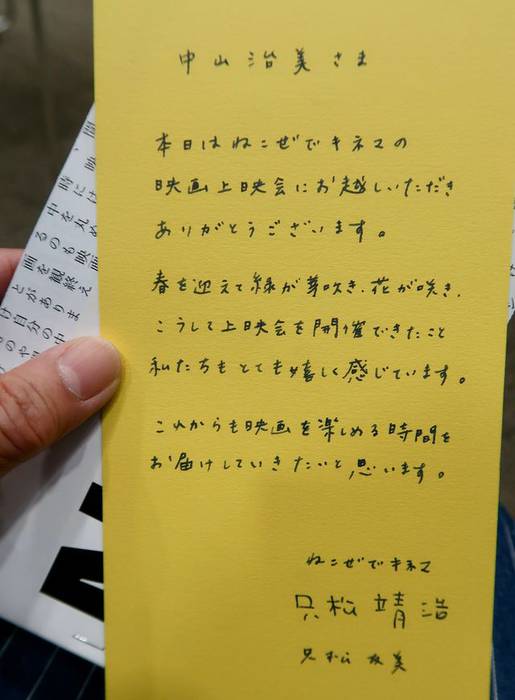 中山治美さま
本日はねこぜでキネマの
映画上映会にお越しいただき
ありがとうございます。
春を迎えて緑が芽吹き、花が咲き、
こうして上映会を開催できたこと
私たちもとても嬉しく感じています。
これからも映画を楽しめる時間を
お届けしていきたいと思います。
ねこぜでキネマ
只松靖浩
只松
時には
中を丸め
るのも映画
画を観終え
とがありま
け自分の中